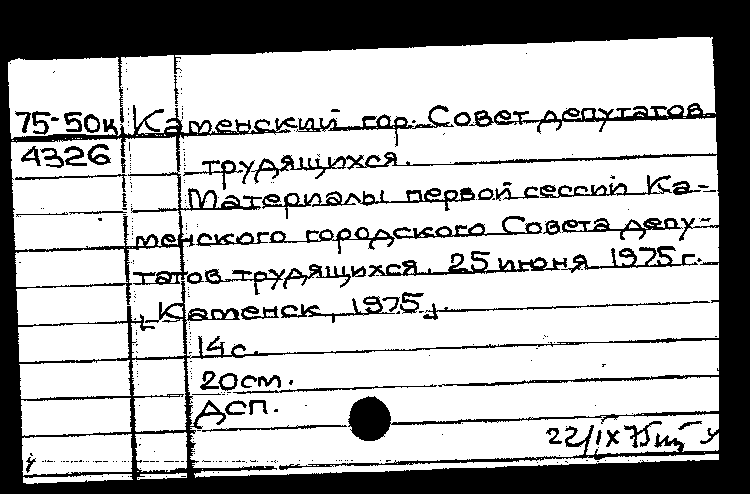 75-50к Каменский гор. Совет депутатов
4326 трудящихся.
Материалы первой сессии Ка-
менского городского Совета депу-
татов трудящихся. 25 июня 1975 г.
[Каменск, 1975].
14 с.
20 см.
ДСП.
22/IX 75
ч